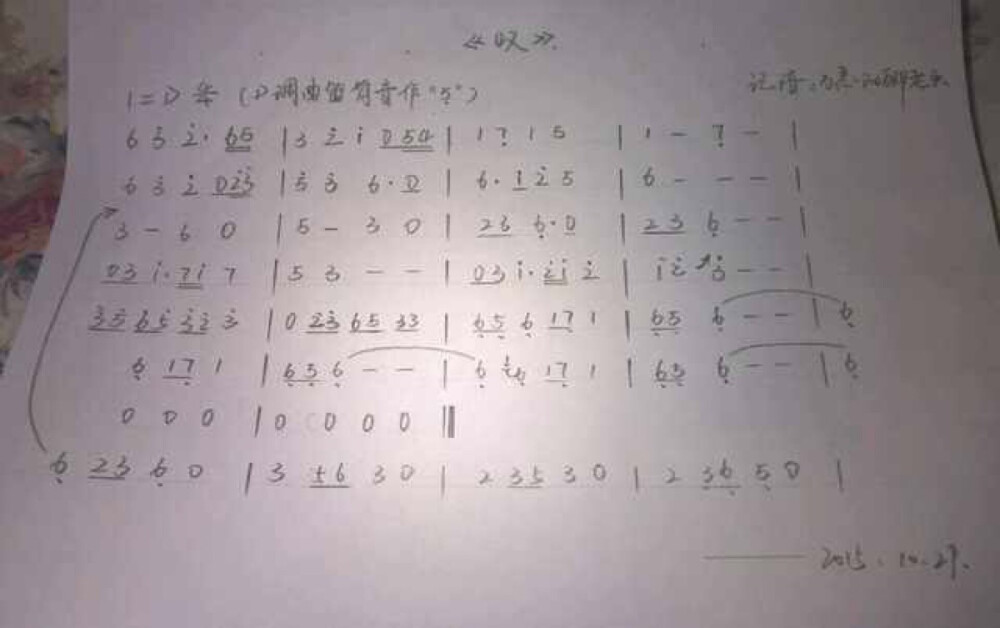 《叹》
1=D (D调曲笛筒音作"5")
记谱:
6 3̇ 2̇· 65 | 3̇ 2̇ 1̇ 054 | 1 7̣ 1 5 | 1 - 7̣ - |
6 3̇ 2̇ 02̇3̇ | 5̇ 3̇ 6·0 | 6·1̇ 2̇ 5 | 6 - - - |
3 - 6 0 | 5 - 3 0 | 23 6̣·0 | 23 6̣ - - |
03 1̇·71̇ 7 | 5 3 - - | 03 1̇·2̇1̇ 2̇ | 1̇ 2̇ - - |
3̇5̇ 6̇5̇ 3̇2̇ 3̇ | 0 2̇3̇ 65 33 | 6̣5̣ 6̣ 17̣ 1 | 6̣5̣ 6̣ - - | 6̣
6̣ 17̣ 1 | 6̣5̣6̣ - - | 6̣ 17̣ 1 | 6̣5̣ 6̣ - - | 6̣
0 0 0 | 0 0 0 0 ‖
6̣ 23 6̣ 0 | 3 56 3 0 | 2 35 3 0 | 2 36̣ 5̣ 0 |
—— 2015.10.27.